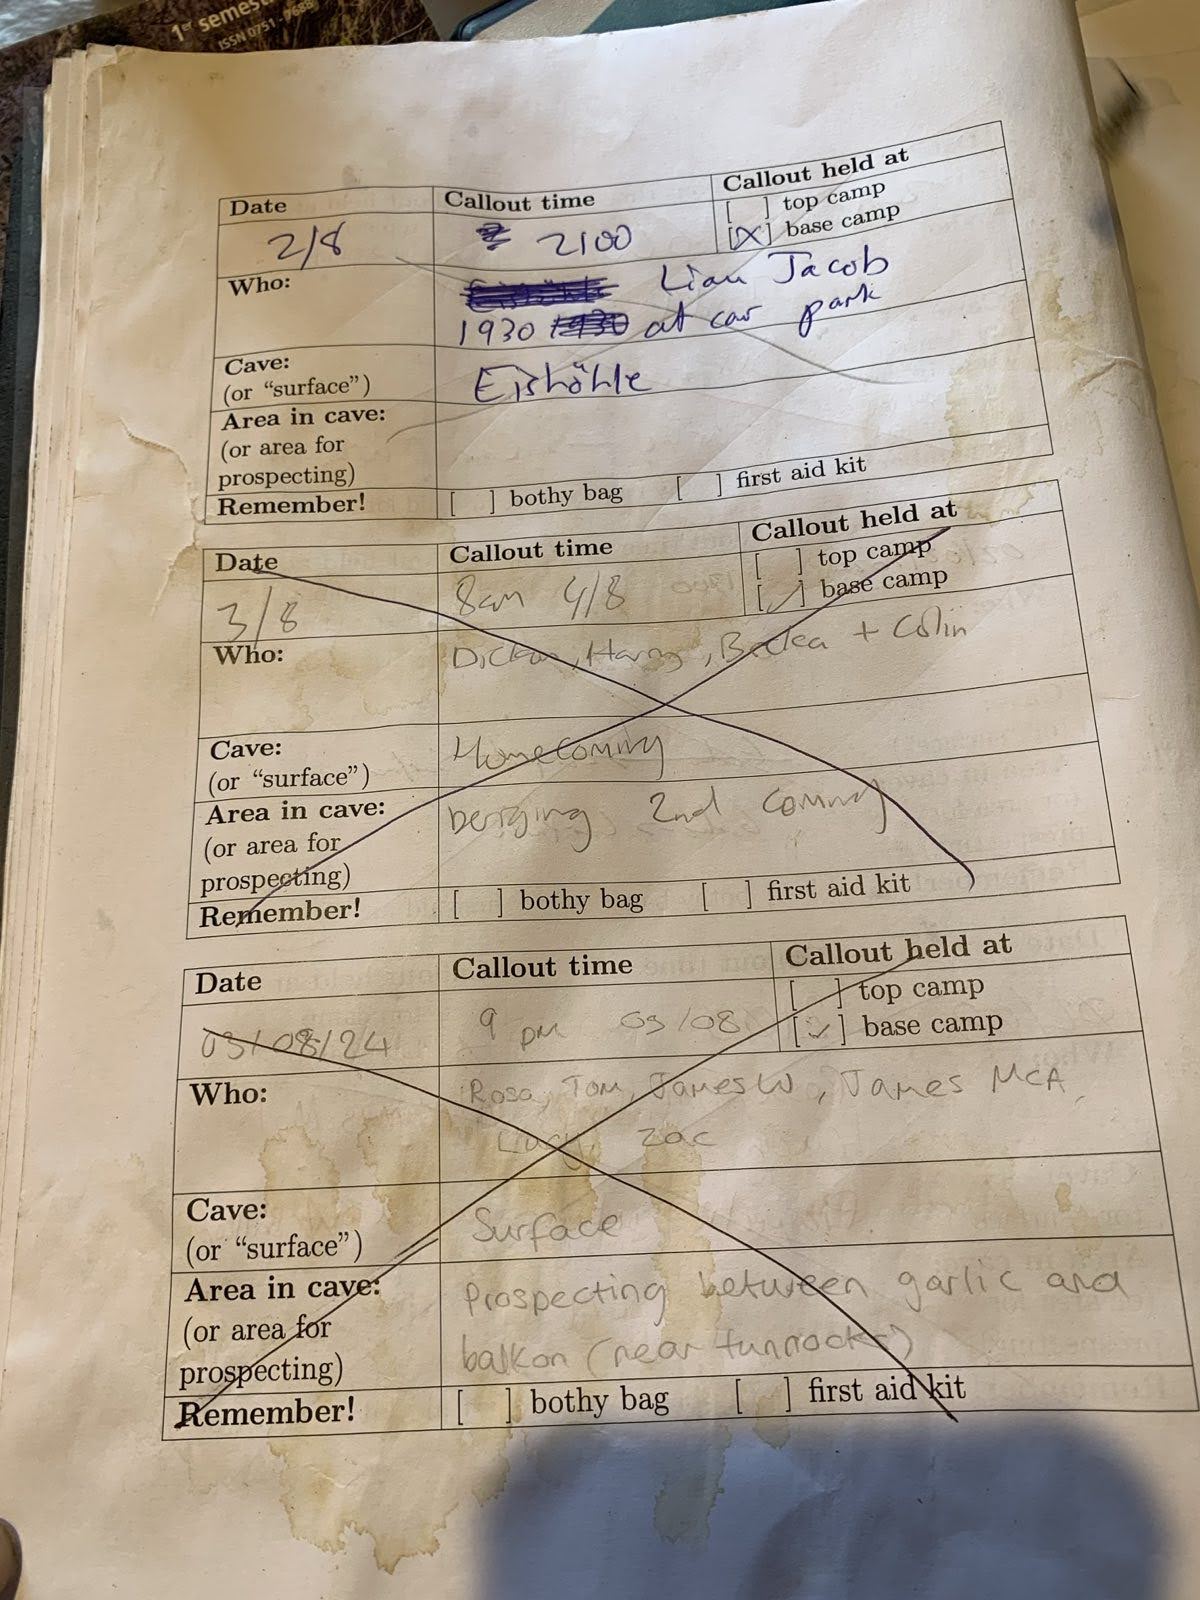 1er semest
ISSN 0751-7688
Date
Callout time
Callout held at
2/8
2100
[ ] top camp
[X] base camp
Who:
Liam Jacob
1930 1930 at car park
Cave:
(or “surface”)
Eishöhle
Area in cave:
(or area for
prospecting)
Remember!
[ ] bothy bag [ ] first aid kit
Date
Callout time
Callout held at
3/8
8am 4/8
[ ] top camp
[✓] base camp
Who:
Dickon, Harry, Becka + Colin
Cave:
(or “surface”)
Homecoming
Area in cave:
(or area for
prospecting)
2nd coming
Remember!
[ ] bothy bag [ ] first aid kit
Date
Callout time
Callout held at
03/08/24
9 pm 03/08
[ ] top camp
[✓] base camp
Who:
Rosa, Tom, James W, James McA,
zac
Cave:
(or “surface”)
Surface
Area in cave:
(or area for
prospecting)
Prospecting between garlic and
balkon (near tunnocks)
Remember!
[ ] bothy bag [ ] first aid kit